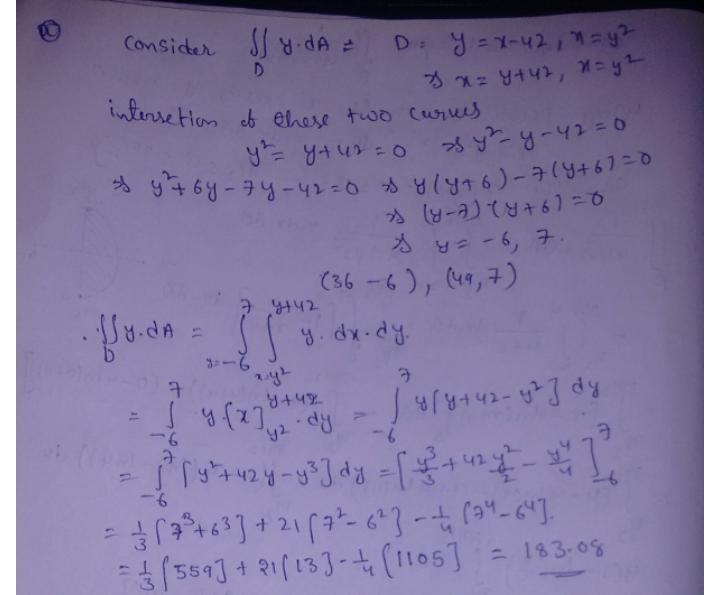 Consider ∬_D y·dA = D: y = x-42, x = y²
⇒ x = y+42, x = y²
intersetion of these two curves
y² = y+42 = 0 ⇒ y² - y - 42 = 0
⇒ y² + 6y - 7y - 42 = 0 ⇒ y(y+6) - 7(y+6) = 0
⇒ (y-7)·(y+6) = 0
⇒ y = -6, 7.
(36 -6), (49, 7)
∴ ∬_D y·dA = ∫_{y=-6}^{7} ∫_{x=y²}^{y+42} y·dx·dy.
= ∫_{-6}^{7} y·[x]_{y²}^{y+42}·dy = ∫_{-6}^{7} y[y+42-y²] dy
= ∫_{-6}^{7} [y²+42y-y³] dy = [y³/3 + 42 y²/2 - y⁴/4]_{-6}^{7}
= 1/3 [7³+6³] + 21[7²-6²] - 1/4 [7⁴-6⁴].
= 1/3 [559] + 21[13] - 1/4 (1105) = 183.08